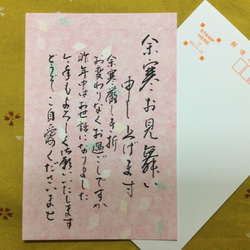 余寒お見舞い
申し上げます
余寒厳しき折
お変わりなくお過ごしですか
昨年中はお世話になりました
今年もよろしくお願いいたします
どうぞご自愛くださいませ